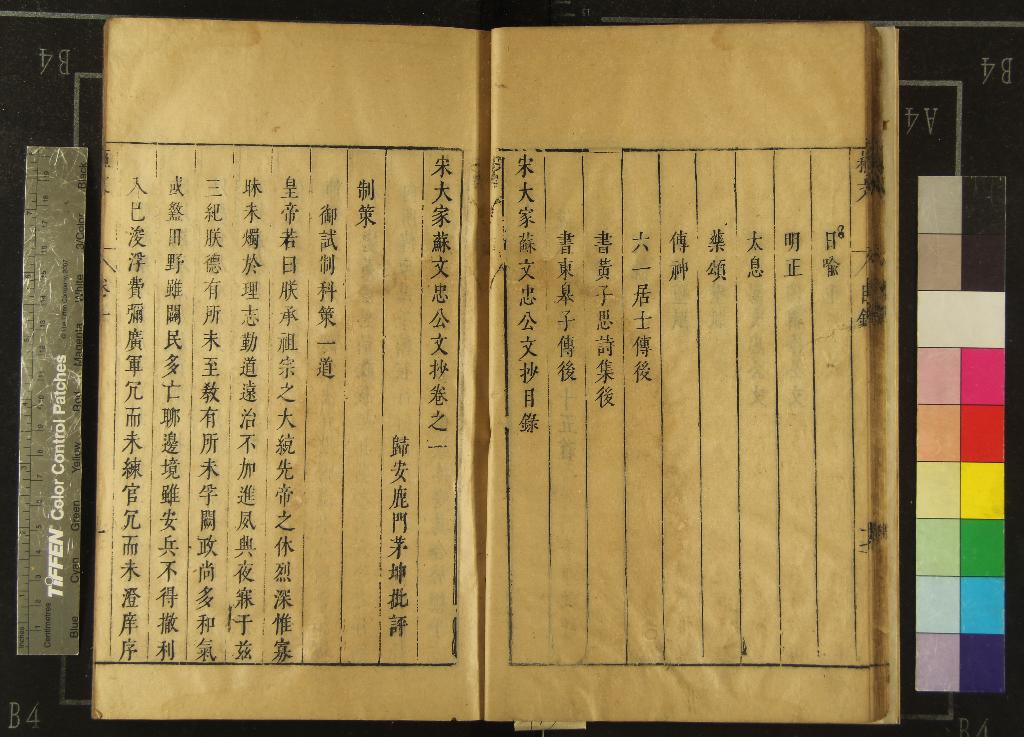 日喻
明正
太息
藥頌
傳神
六一居士傳後
書黃子思詩集後
書東臯子傳後
宋大家蘇文忠公文抄目錄
宋大家蘇文忠公文抄卷之一
歸安鹿門茅坤批評
制策
御試制科策一道
皇帝若曰朕承祖宗之大統先帝之休烈深惟寡
昧未燭於理志勤道遠治不加進夙興夜寐于兹
三紀朕德有所未至教有所未孚闕政尚多和氣
或盭田野雖闢民多亡聊邊境雖安兵不得撤利
入已浚浮費彌廣軍冗而未練官冗而未澄庠序
TIFFEN Color Control Patches
Blue Cyan Green Yellow Red Magenta White 3/Color Black
Centimetres
Inches
B4
B4
A4
B4
B4